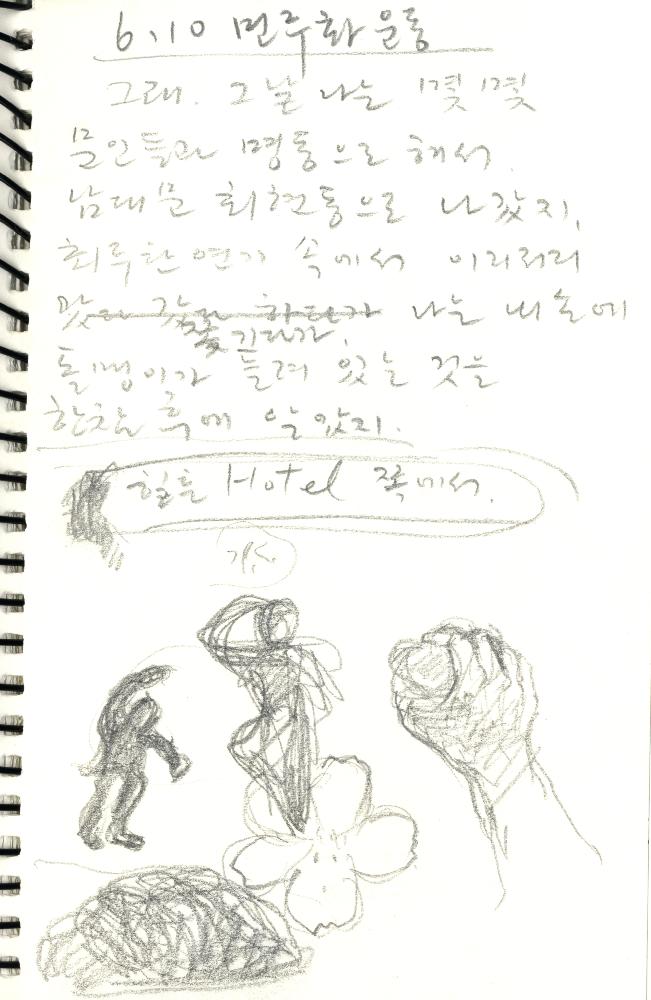 6.10 민주화 운동
그래. 그날 나는 몇몇
문인들과 명동으로 해서
남대문 회현동으로 나갔지.
최루탄 연기 속에서 이리저리
나는 내 손에
쫓기다가,
돌멩이가 들려 있는 것을
한참 후에 알았지.
힐튼 Hotel 쪽에서.